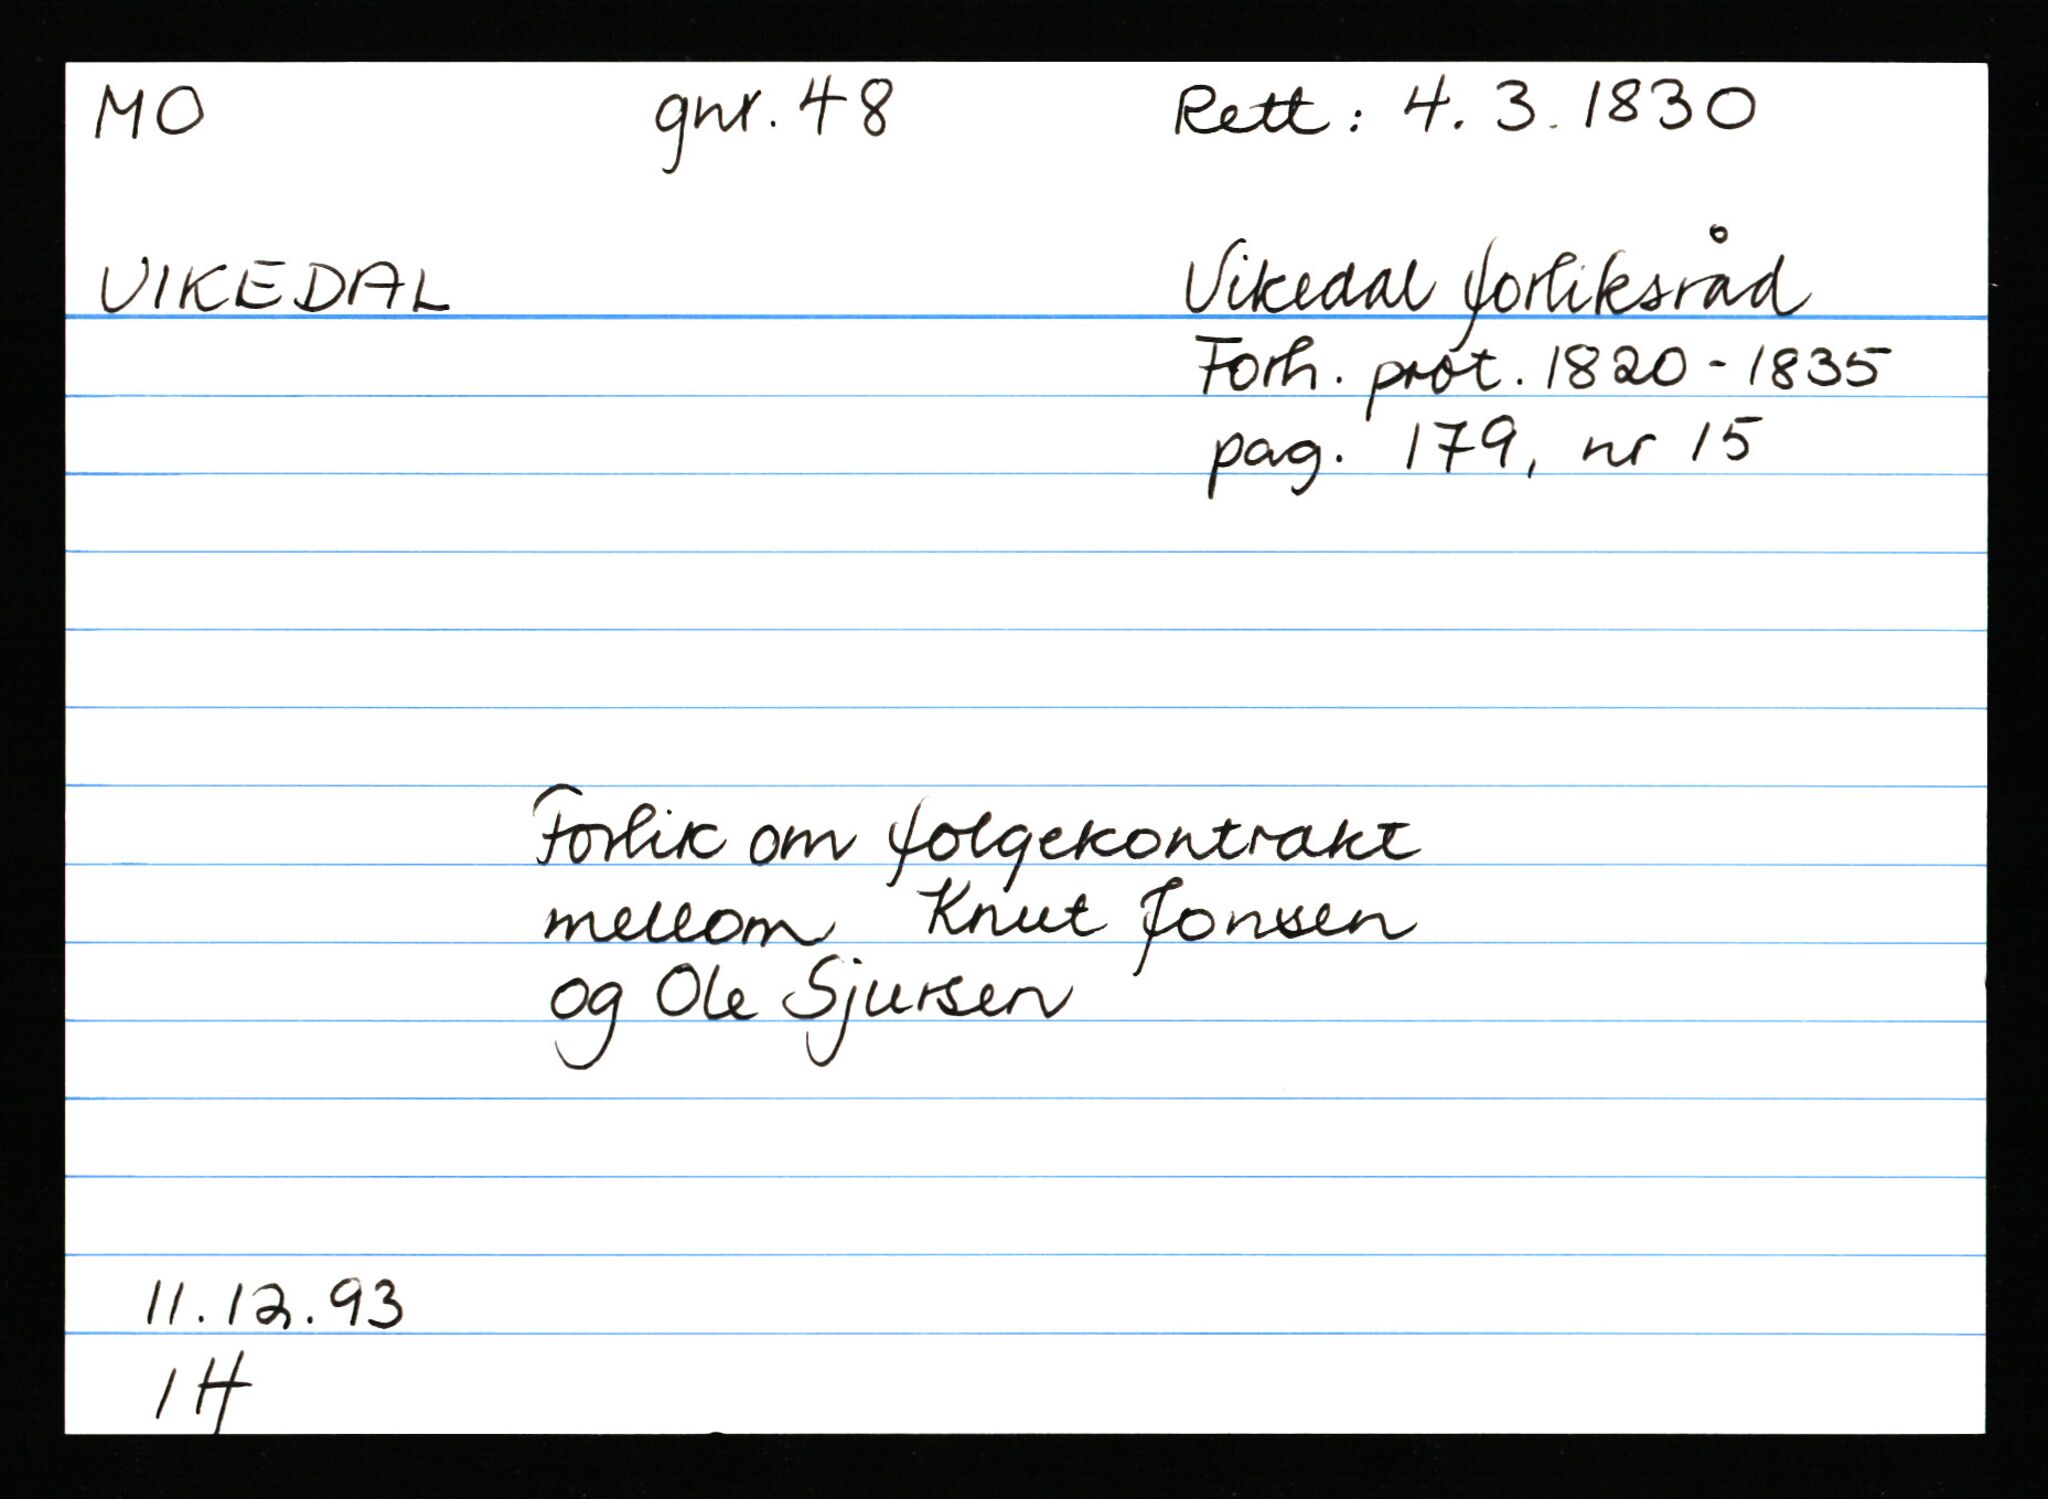 MO gnr. 48 Rett: 4. 3. 1830
VIKEDAL Vikedal forliksråd
Forh. prot. 1820 - 1835
pag. 179, nr 15
Forlik om folgekontrakt
mellom Knut Jonsen
og Ole Sjursen
11.12.93
IH